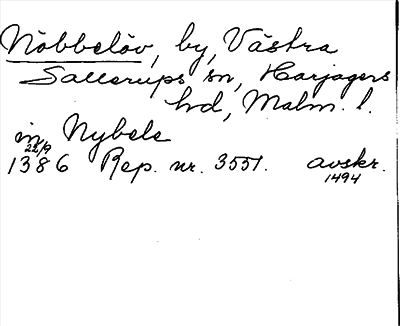 Nöbbelöv, by, Västra
Sallerups sn, Harjagers
hd, Malm. l.
in Nybele
22/9
1386 Rep. nr. 3551. avskr.
1494